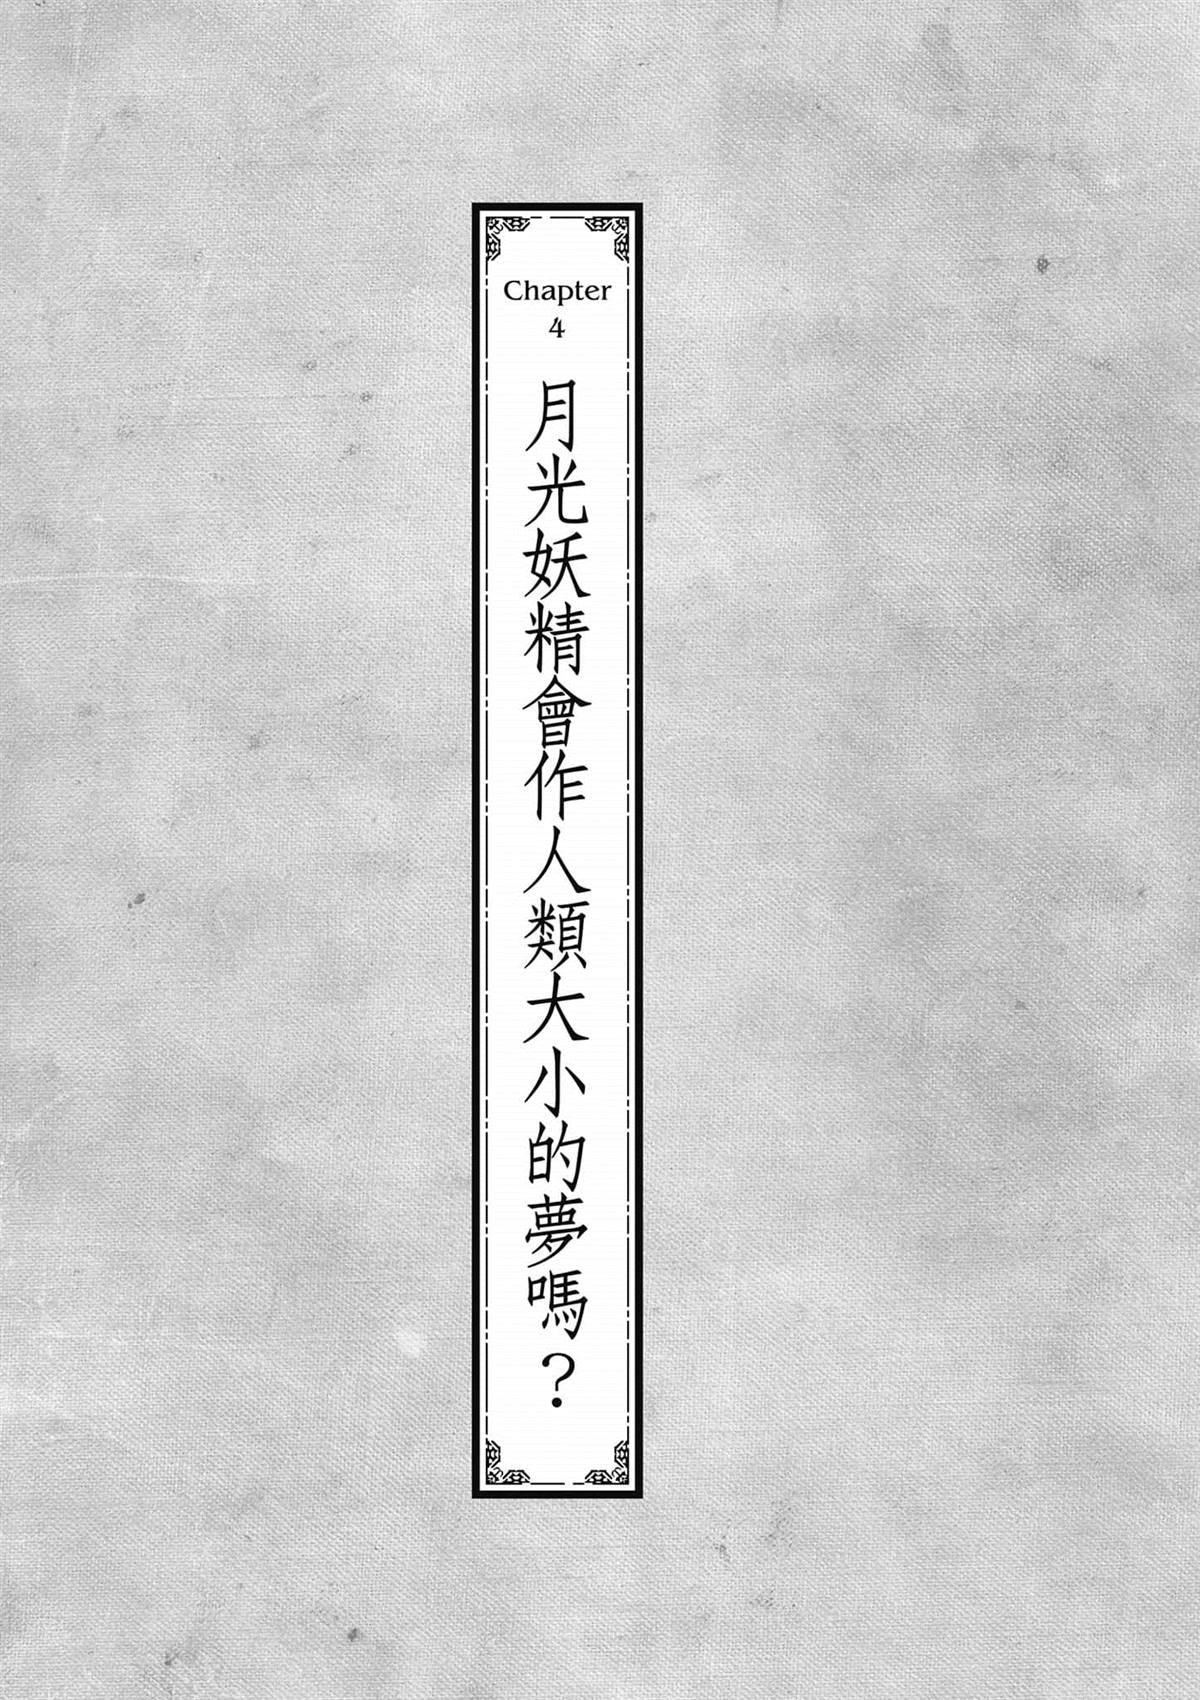 Chapter
4
月光妖精會作人類大小的夢嗎？